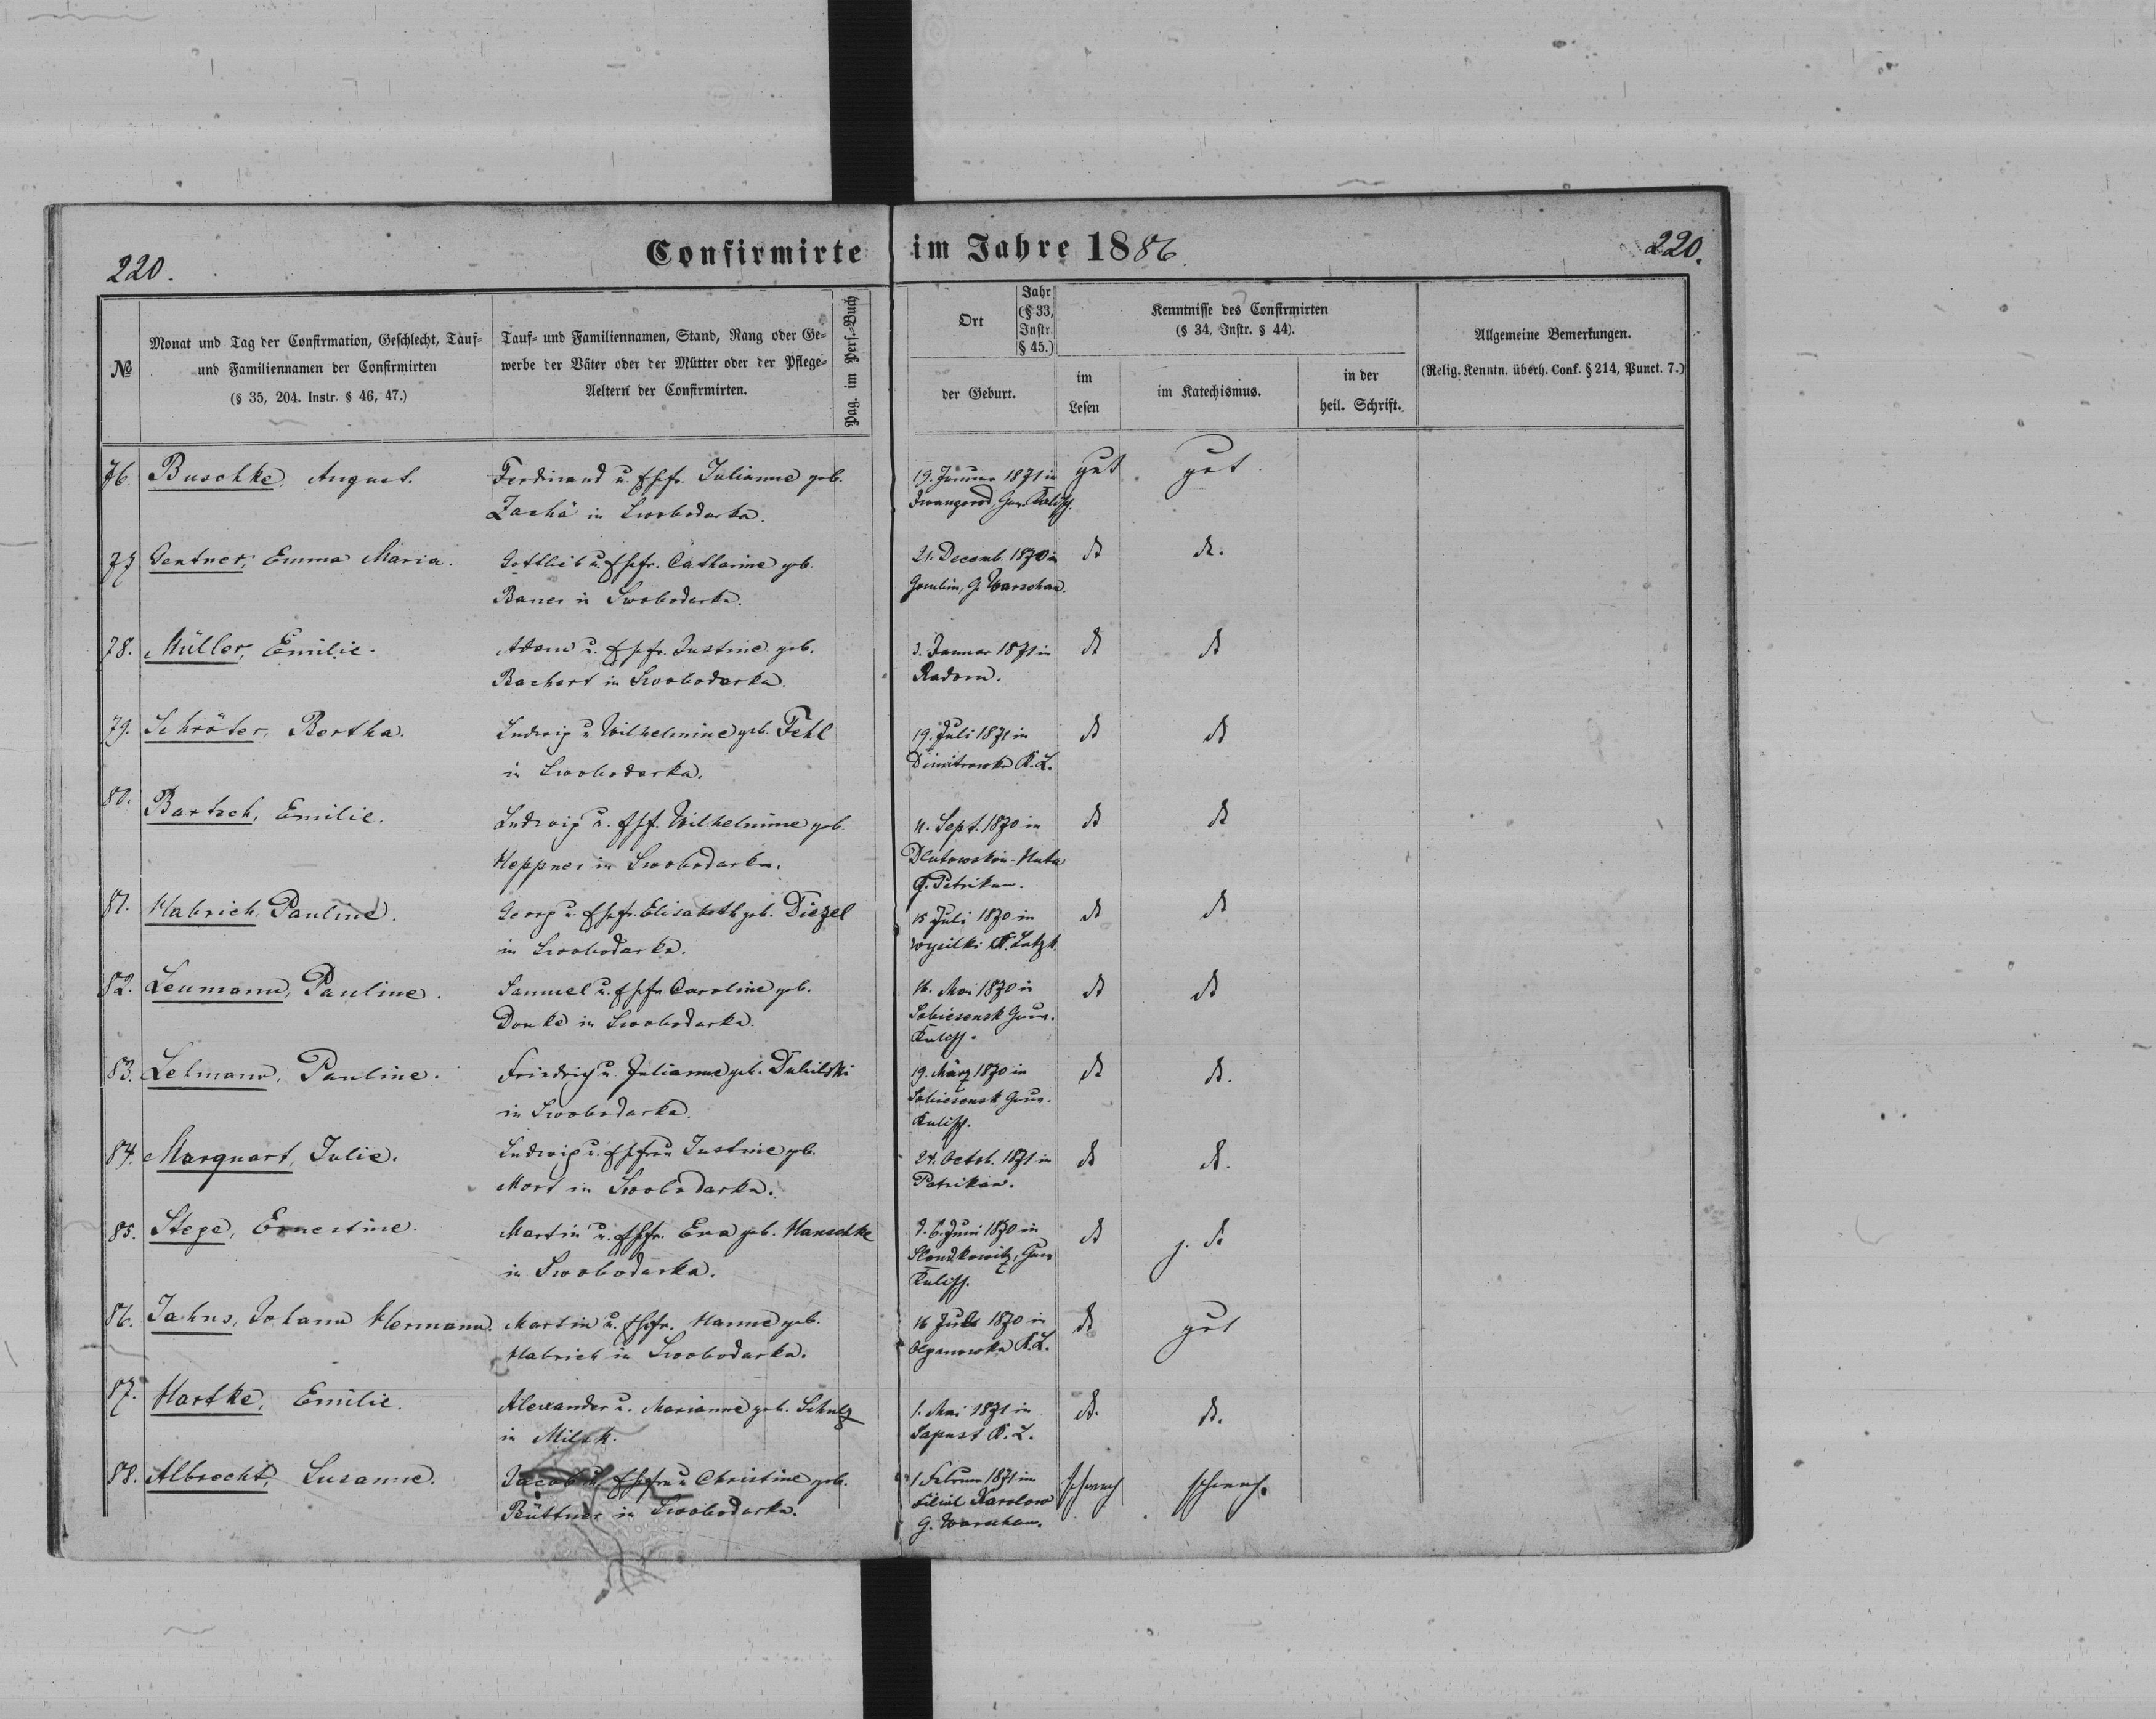 Confirmirte im Jahre 1886.
220. 220.
№
Monat und Tag der Confirmation, Geschlecht, Tauf=
und Familiennamen der Confirmirten
(§ 35, 204. Instr. § 46, 47.)
Tauf= und Familiennamen, Stand, Rang oder Ge=
werbe der Väter oder der Mütter oder der Pflege=
Aeltern der Confirmirten.
Pag. im Pers.=Buch
Ort
Jahr
(§ 33,
Instr.
§ 45.)
der Geburt.
Kenntnisse des Confirmirten
(§ 34, Instr. § 44).
im
Lesen
im Katechismus.
in der
heil. Schrift.
Allgemeine Bemerkungen.
(Relig. Kenntn. überh. Conf. § 214, Punct. 7.)
76. Buschke, August.
Ferdinand u. Ehefr. Julianne geb.
Zachä in Swobodarka.
19. Januar 1871 in
Iwangorod Guv. Kalisch.
gut gut
77 Gentner, Emma Maria.
Gottlieb u. Ehefr. Catharine geb.
Bauer in Swobodarka.
21. Decemb. 1870 in
Gombin, G. Warschau.
dt dt.
78. Müller, Emilie.
Adam u. Ehefr. Justine geb.
Bachert in Swobodarka.
3. Januar 1871 in
Radom.
dt dt
79. Schröter, Bertha.
Ludwig u. Wilhelmine geb. Fehl
in Swobodarka.
19. Juli 1871 in
Dimitrowka K. L.
dt dt
80. Bartsch, Emilie.
Ludwig u. Ehf. Wilhelmine geb.
Heppner in Swobodarka.
11. Sept. 1870 in
Dlutowskin-Huta
G. Petrikau.
dt dt
81. Habrich, Pauline.
Georg u. Ehefr. Elisabeth geb. Diezel
in Swobodarka.
15 Juli 1870 in
Wysilki K. Lutzk.
dt dt
82. Leumann, Pauline.
Samuel u. Ehefr. Caroline geb.
Donke in Swobodarka.
16. Mai 1870 in
Sobiesensk Guv.
Kalisch.
dt dt
83. Lehmann, Pauline.
Friedrich u. Julianne geb. Dubilski
in Swobodarka.
19. März 1870 in
Sobiesensk Guv.
Kalisch.
dt dt.
84. Marquart, Julie.
Ludwig u. Ehefrau Justine geb.
Mort in Swobodarka.
24. Octob. 1871 in
Petrikau.
dt dt.
85. Stege, Ernestine.
Martin u. Ehefr. Eva geb. Hanschke
in Swobodarka.
d. 6. Juni 1870 in
Slondkowitz, Guv
Kalisch.
dt z. dt
86. Jahns, Johann Hermann.
Martin u. Ehefr. Hanne geb.
Habrich in Swobodarka.
16 Juli 1870 in
Olganowka K. L.
dt gut
87. Hartke, Emilie.
Alexander u. Marianne geb. Schulz
in Milsk.
1. Mai 1871 in
Sapust K. L.
dt. dt.
88. Albrecht, Susanne.
Jacob u. Ehefrau Christine geb.
Büttner in Swobodarka.
1. Februar 1871 in
Filial Karolow
G. Warschau.
schwach schwach.